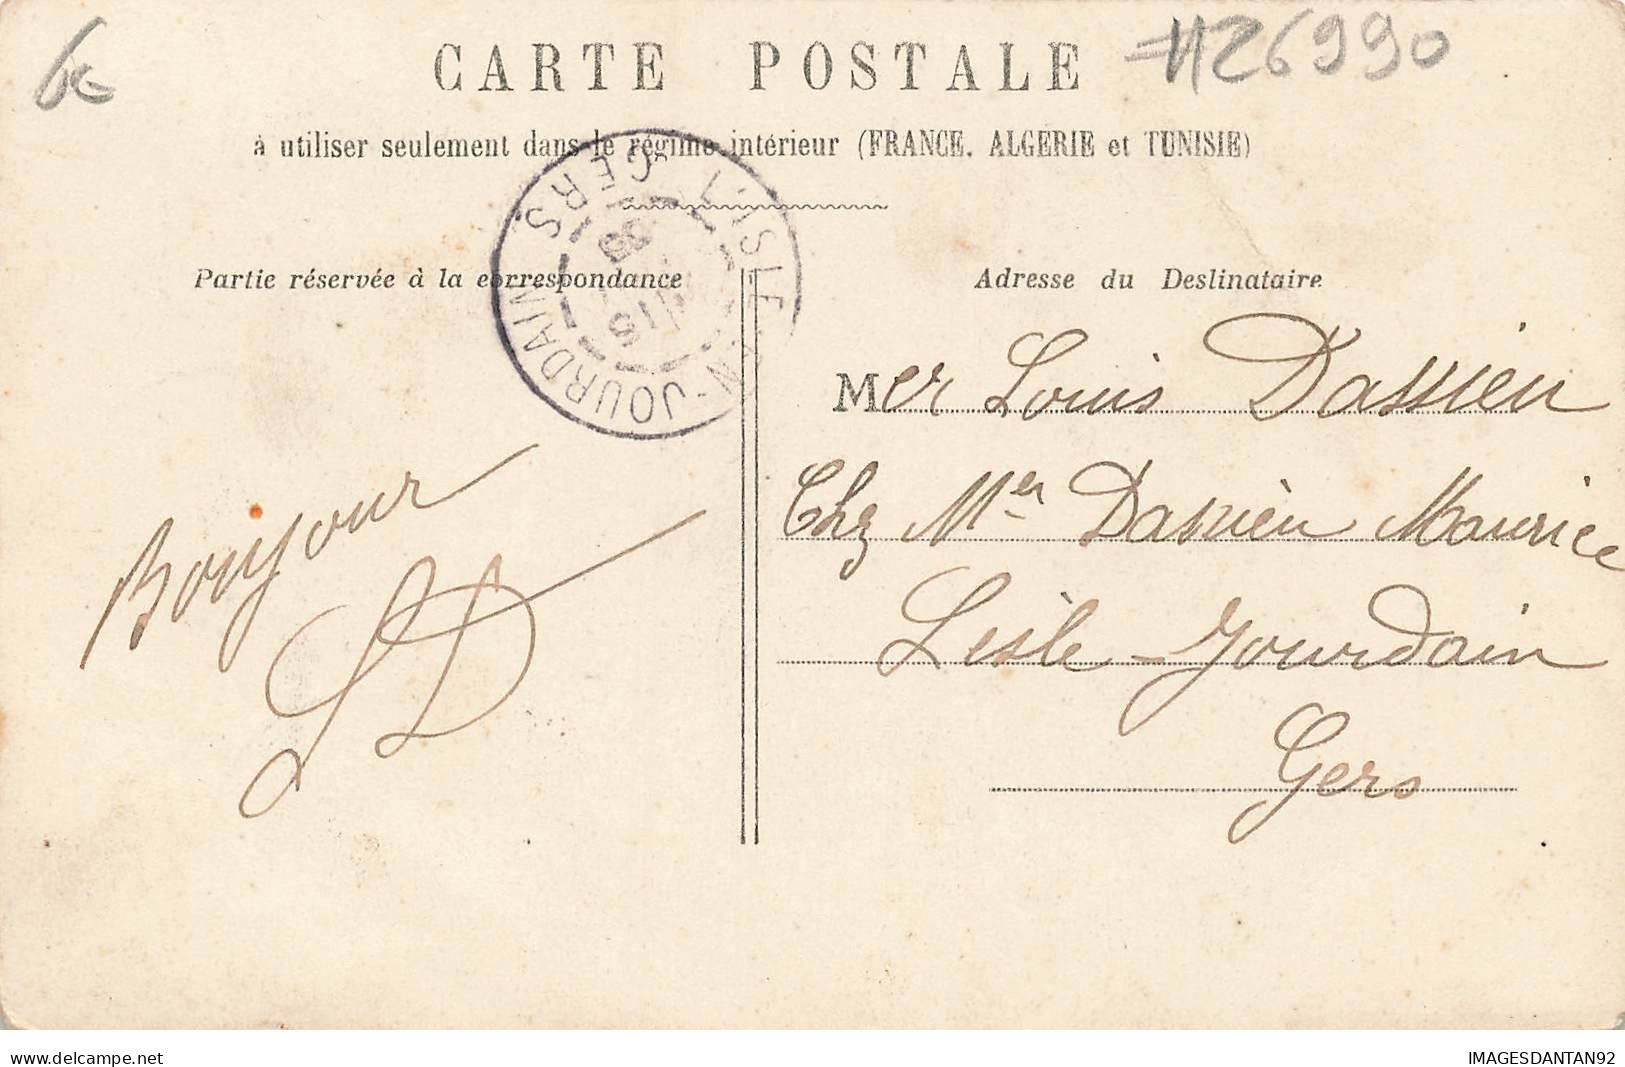 6€
#26990
CARTE POSTALE
à utiliser seulement dans le régime intérieur (FRANCE, ALGERIE et TUNISIE)
L'ISLE-EN-JOURDAIN
GERS
Partie réservée à la correspondance
Adresse du Destinataire
Mer Louis Dassien
Chz Mer Dassien Maurice
Lesle-Jourdain
Gers
Bonjour
LD
delcampe.net
IMAGESDANTAN92